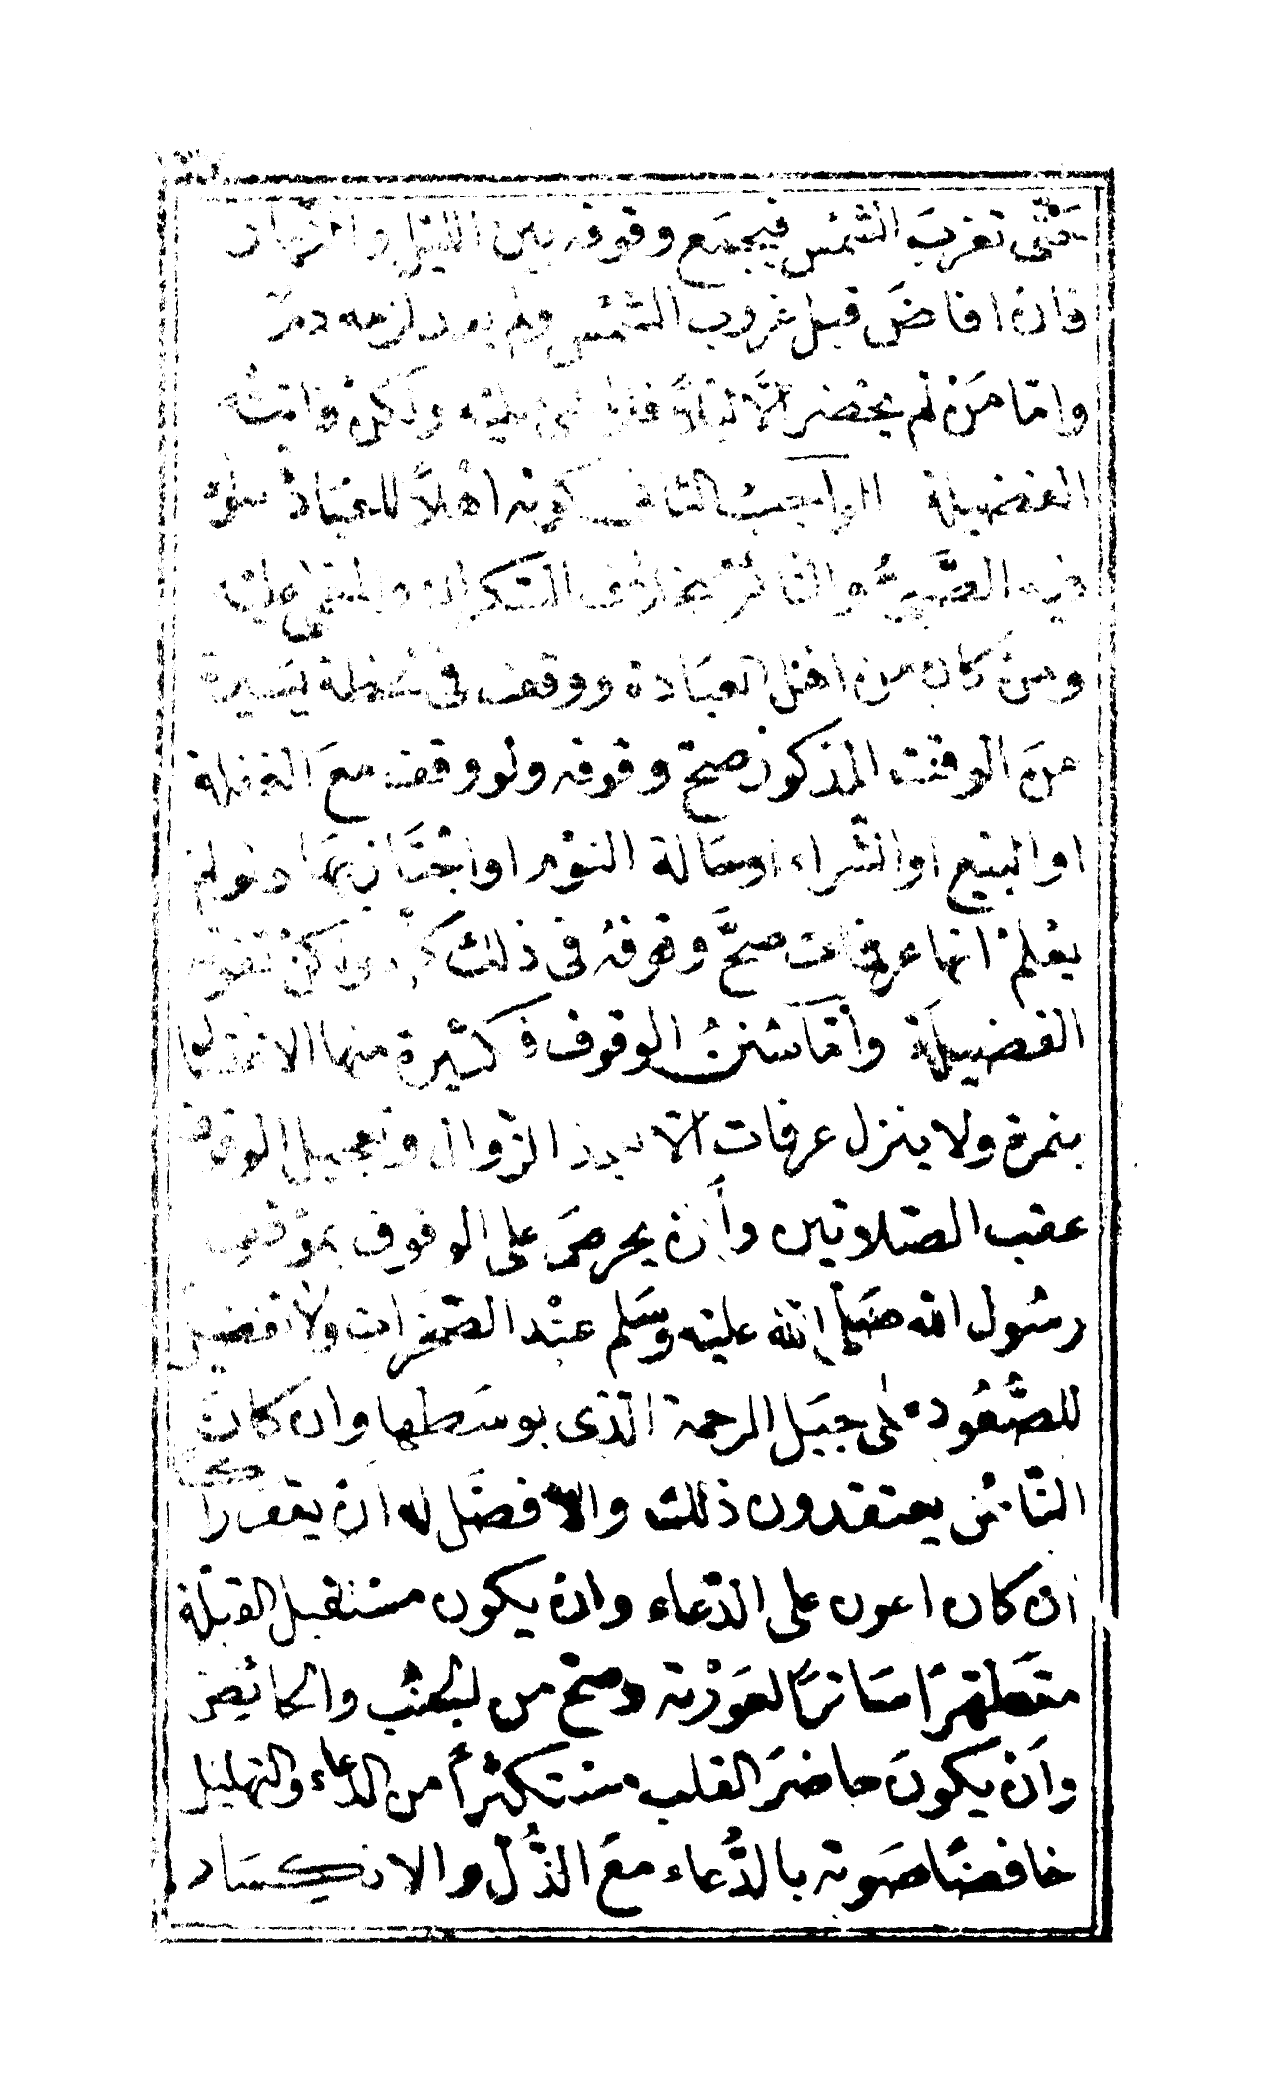 حَتّى تغربَ الشمس فيجمَع وقوفه بين الليل والنّهار
فان افاضَ قبل غروب الشمْس ولم يعد لزمه دمٌ
وامّا مَنْ لم يحْضر الّا ليْلاً فلا شئ عليْه ولكنْ فاتتْه
الفضيلة الواجبُ الثانى كونه اهْلاً للعبَادة سواء
فيه الصّبيُّ والنائم بخلاف السّكران والمغمى عليه
ومنْ كان من اهْل العبَادة ووقف فى لحْظة يَسيرة
منَ الوقْت المذكور صح وقوفه ولو وقف معَ الغفلة
او البيْع او الشّراء اوحَالة النوْم او اجْتَاز بهَا وهو لم
يعْلمْ انها عرفات صحَّ وقوفهُ فى ذلك كله ولكنْ تفوته
الفضيلَة وأمّا سُننُ الوقوف فكثيرة منها الاغتسال
بنمرة ولا ينزل عرفات الّا بعد الزّوال وتعجيل الوقوف
عقب الصّلاتين وأن يحرصَ على الوقوف بموْقف
رسُول الله صَلى الله عليْه وسَلم عنْد الصّخرات ولا فضيلة
للصُّعُود على جبَل الرحمة الّذى بوسَطها وان كان
النّاسُ يعتقدون ذلك والافضَل له ان يقف راكبا
ان كان اعون على الدّعاء وان يكون مستقبل القبْلة
متَطهّرًا سَاترًا لعَوْرته وصحّ من الجنُب والحائض
وأنْ يكونَ حاضرَ القلب مستكثرًا من الدعاء والتهليل
خافضًا صَوته بالدُّعاء معَ الذُّل والانكسَار